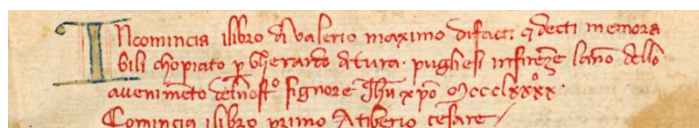 INcomincia ilibro di valerio maximo difacti ⁊ decti memora
bili chopiato p̱ gherardo di tura pugliesi infirenze lanno dello
avenimẽto del nostº signore Jhũ xp̃o Mccclxxxx°
Comincia ilibro primo Atiberio cesare